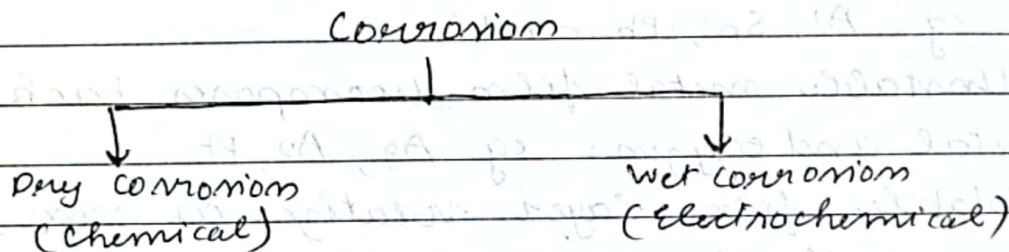 Corrosion
Dry corrosion
(Chemical)
Wet corrosion
(Electrochemical)